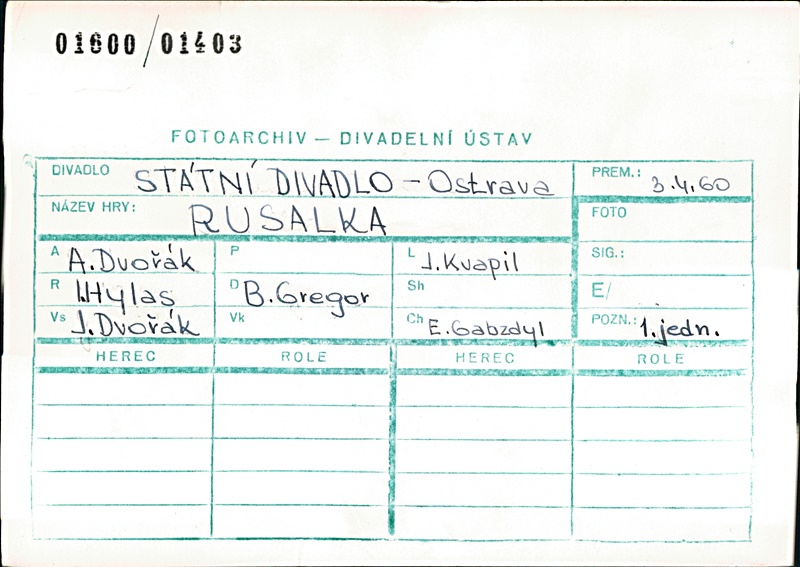 01600/01403
FOTOARCHIV – DIVADELNÍ ÚSTAV
DIVADLO STÁTNÍ DIVADLO – Ostrava PREM.: 3.4.60
NÁZEV HRY: RUSALKA FOTO
A A.Dvořák P L J.Kvapil SIG.:
R I.Hylas D B.Gregor Sh E/
Vs J.Dvořák Vk Ch E.Gabzdyl POZN.: 1.jedn.
HEREC ROLE HEREC ROLE